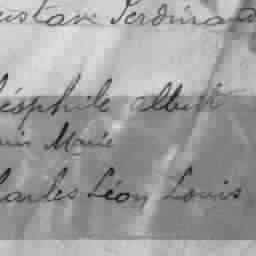 ustave Ferdinand
éophile albert
uis Marie
harles Léon Louis